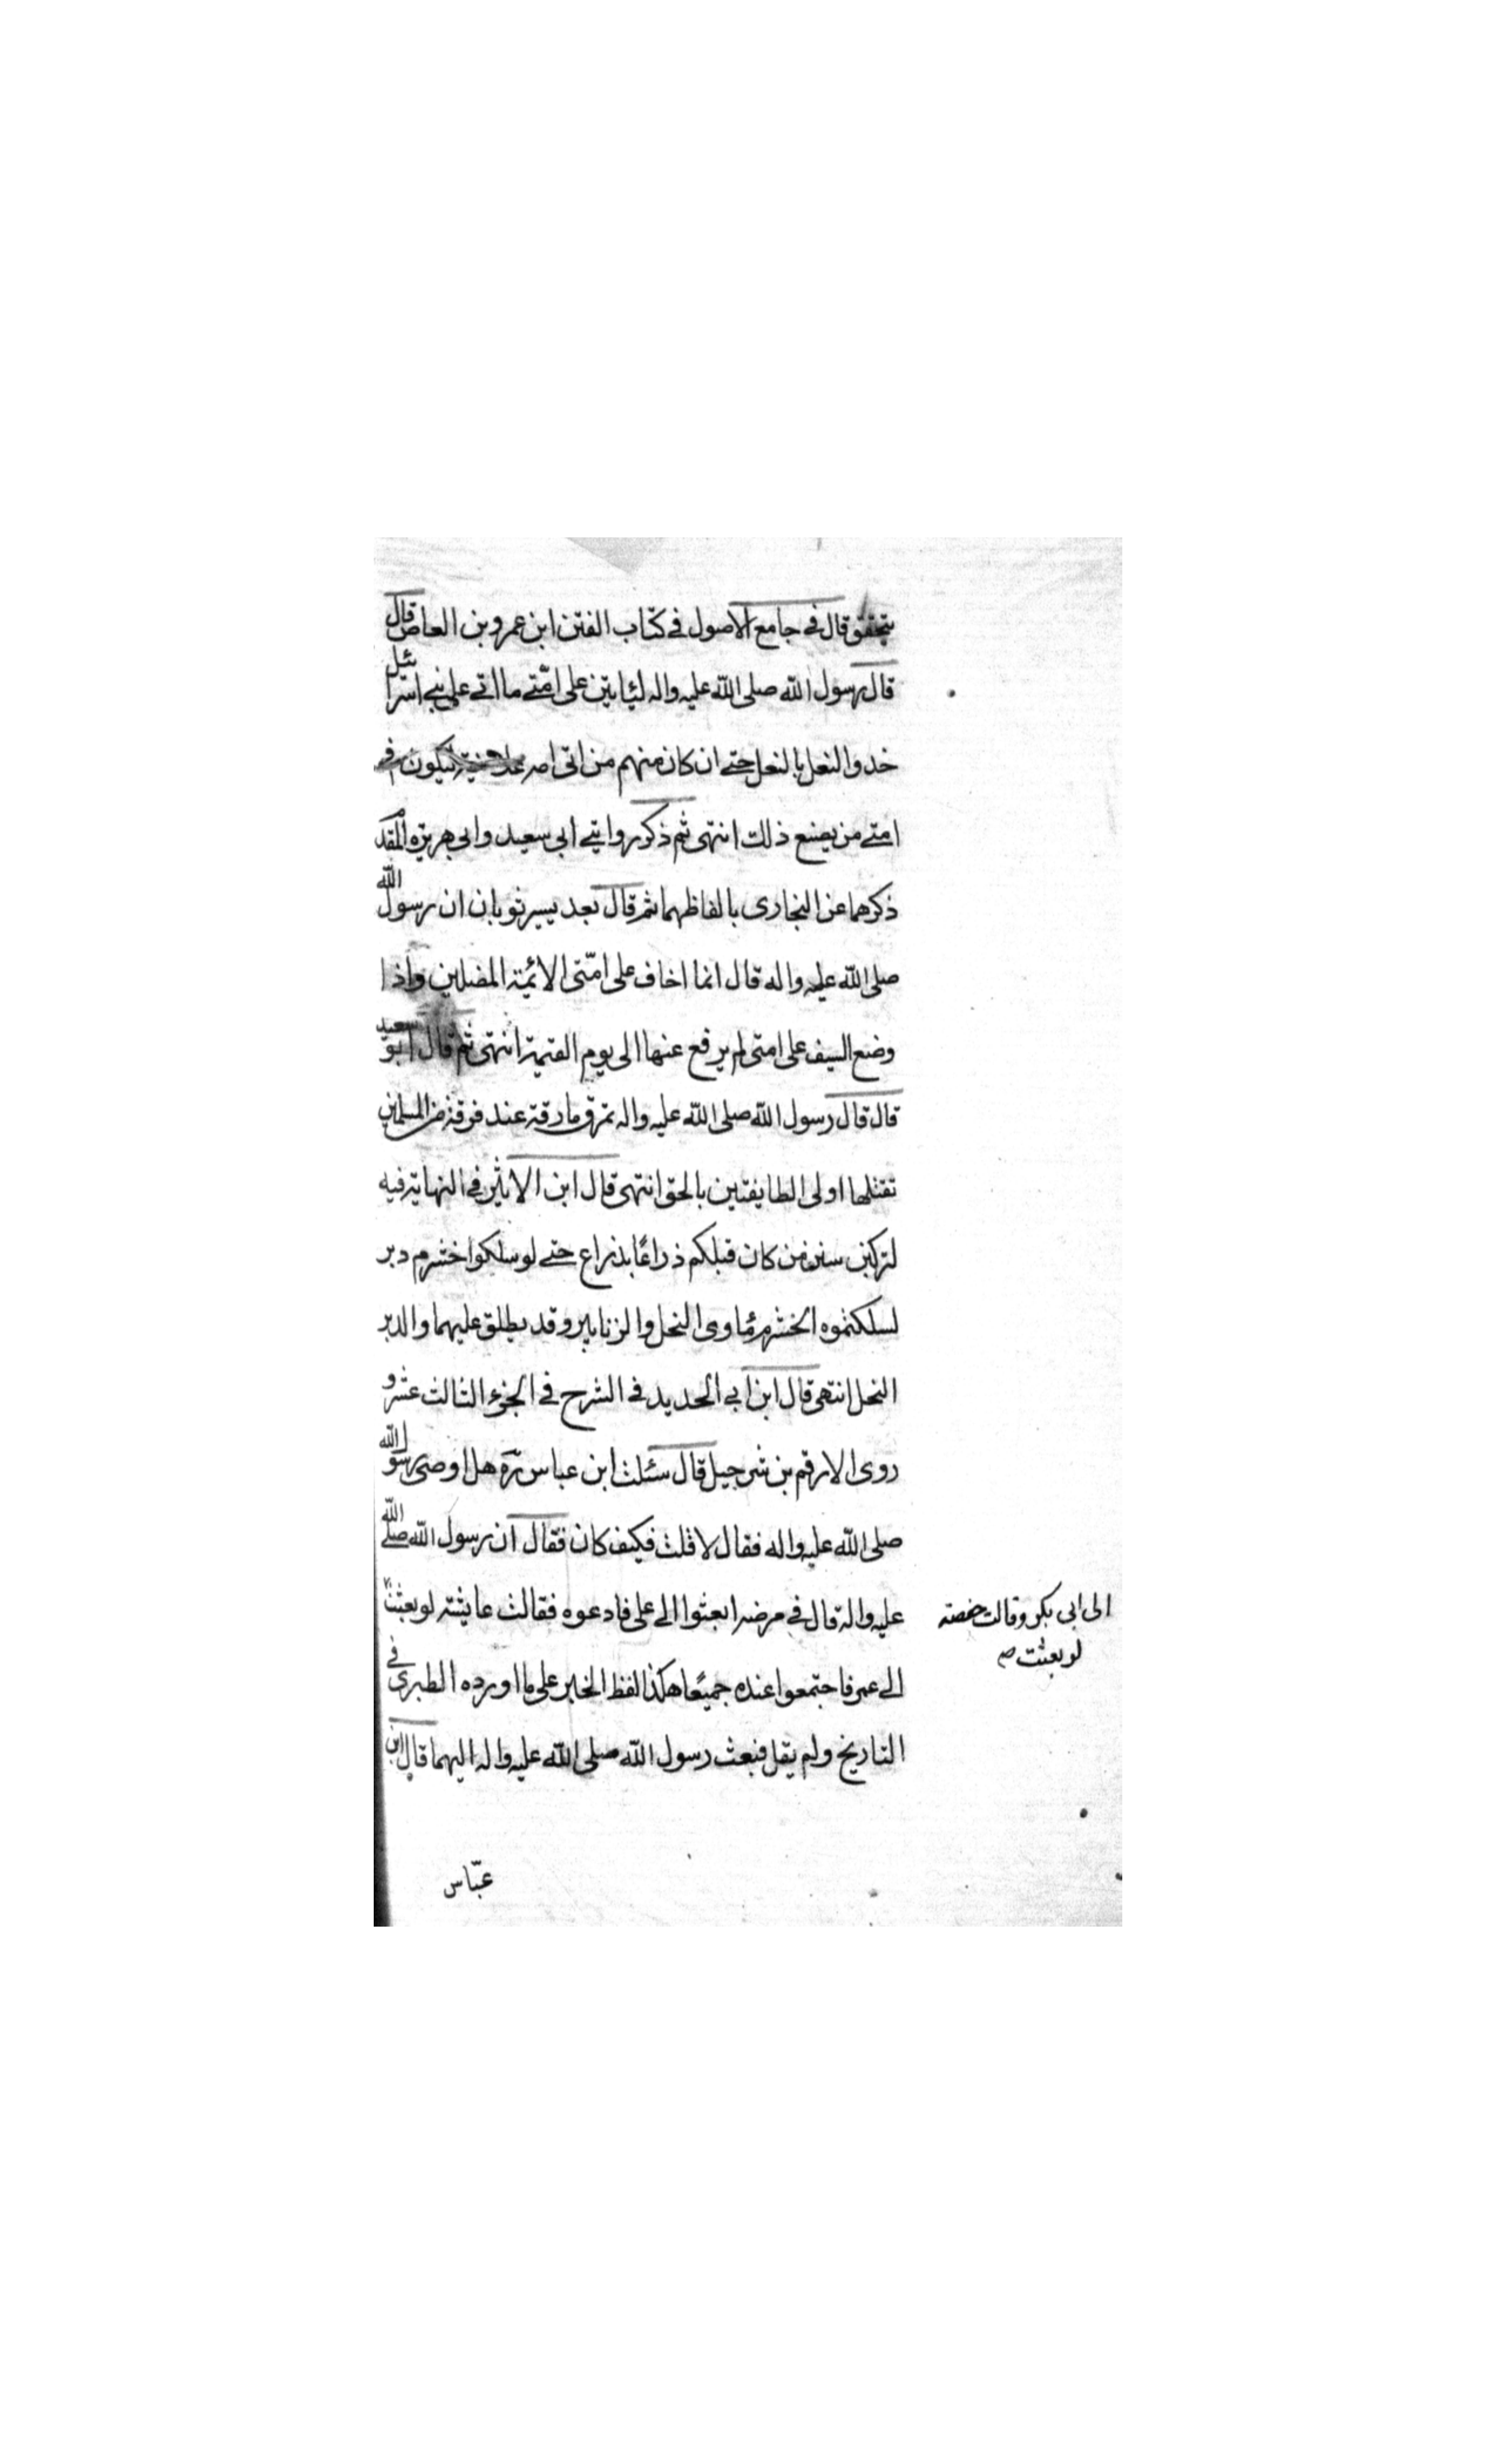 يتحقق قال في جامع الاصول في كتاب الفتن ابن عمرو بن العاص قال
قال رسول الله صلى الله عليه واله ليأتين على امتي ما اتى على بني اسرائيل
حذو النعل بالنعل حتى ان كان منهم من اتى امه علانية ليكون في
امتي من يصنع ذلك انتهى ثم ذكر روايتي ابي سعيد وابي هريرة المقدم
ذكرهما عن البخاري بالفاظهما ثم قال بعد يسير ثوبان ان رسول الله
صلى الله عليه واله قال انما اخاف على امتى الائمة المضلين واذا
وضع السيف على امتى لم يرفع عنها الى يوم القيمة انتهى ثم قال ابو سعيد
قال قال رسول الله صلى الله عليه واله تمرق مارقة عند فرقة من المسلمين
تقتلها اولى الطايفتين بالحق انتهى قال ابن الاثير في النهاية فيه
لتركبن سنن من كان قبلكم ذراعًا بذراع حتى لو سلكوا خشرم دبر
لسلكتموه الخشرم مأوى النحل والزنابير وقد يطلق عليهما والدبر
النحل انتهى قال ابن ابي الحديد في الشرح في الجزء الثالث عشر و
روى الارقم بن شرجيل قال سئلت ابن عباس ره هل اوصى رسول الله
صلى الله عليه واله فقال لا قلت فكيف كان فقال ان رسول الله صلى الله
عليه واله قال في مرضه ابعثوا الى على فادعوه فقالت عايشة لو بعثت
الى ابى بكر وقالت حفصه
لو بعثت صح
الى عمر فاجتمعوا عنده جميعًا هكذا لفظ الخبر على ما اورده الطبرى في
التاريخ ولم يقل فبعث رسول الله صلى الله عليه واله اليهما قال ابن
عبّاس